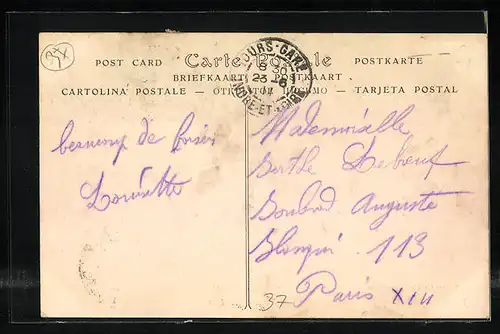 POST CARD Carte Postale POSTKARTE
BRIEFKAART POSTKAART
CARTOLINA POSTALE — TARJETA POSTAL
TOURS-GARE
8 30
23-6
INDRE-ET-LOIRE
beaucoup de
Louisette
Mademoiselle
Berthe Leboeuf
Boulvd Auguste
Blanqui 113
Paris XIII
37